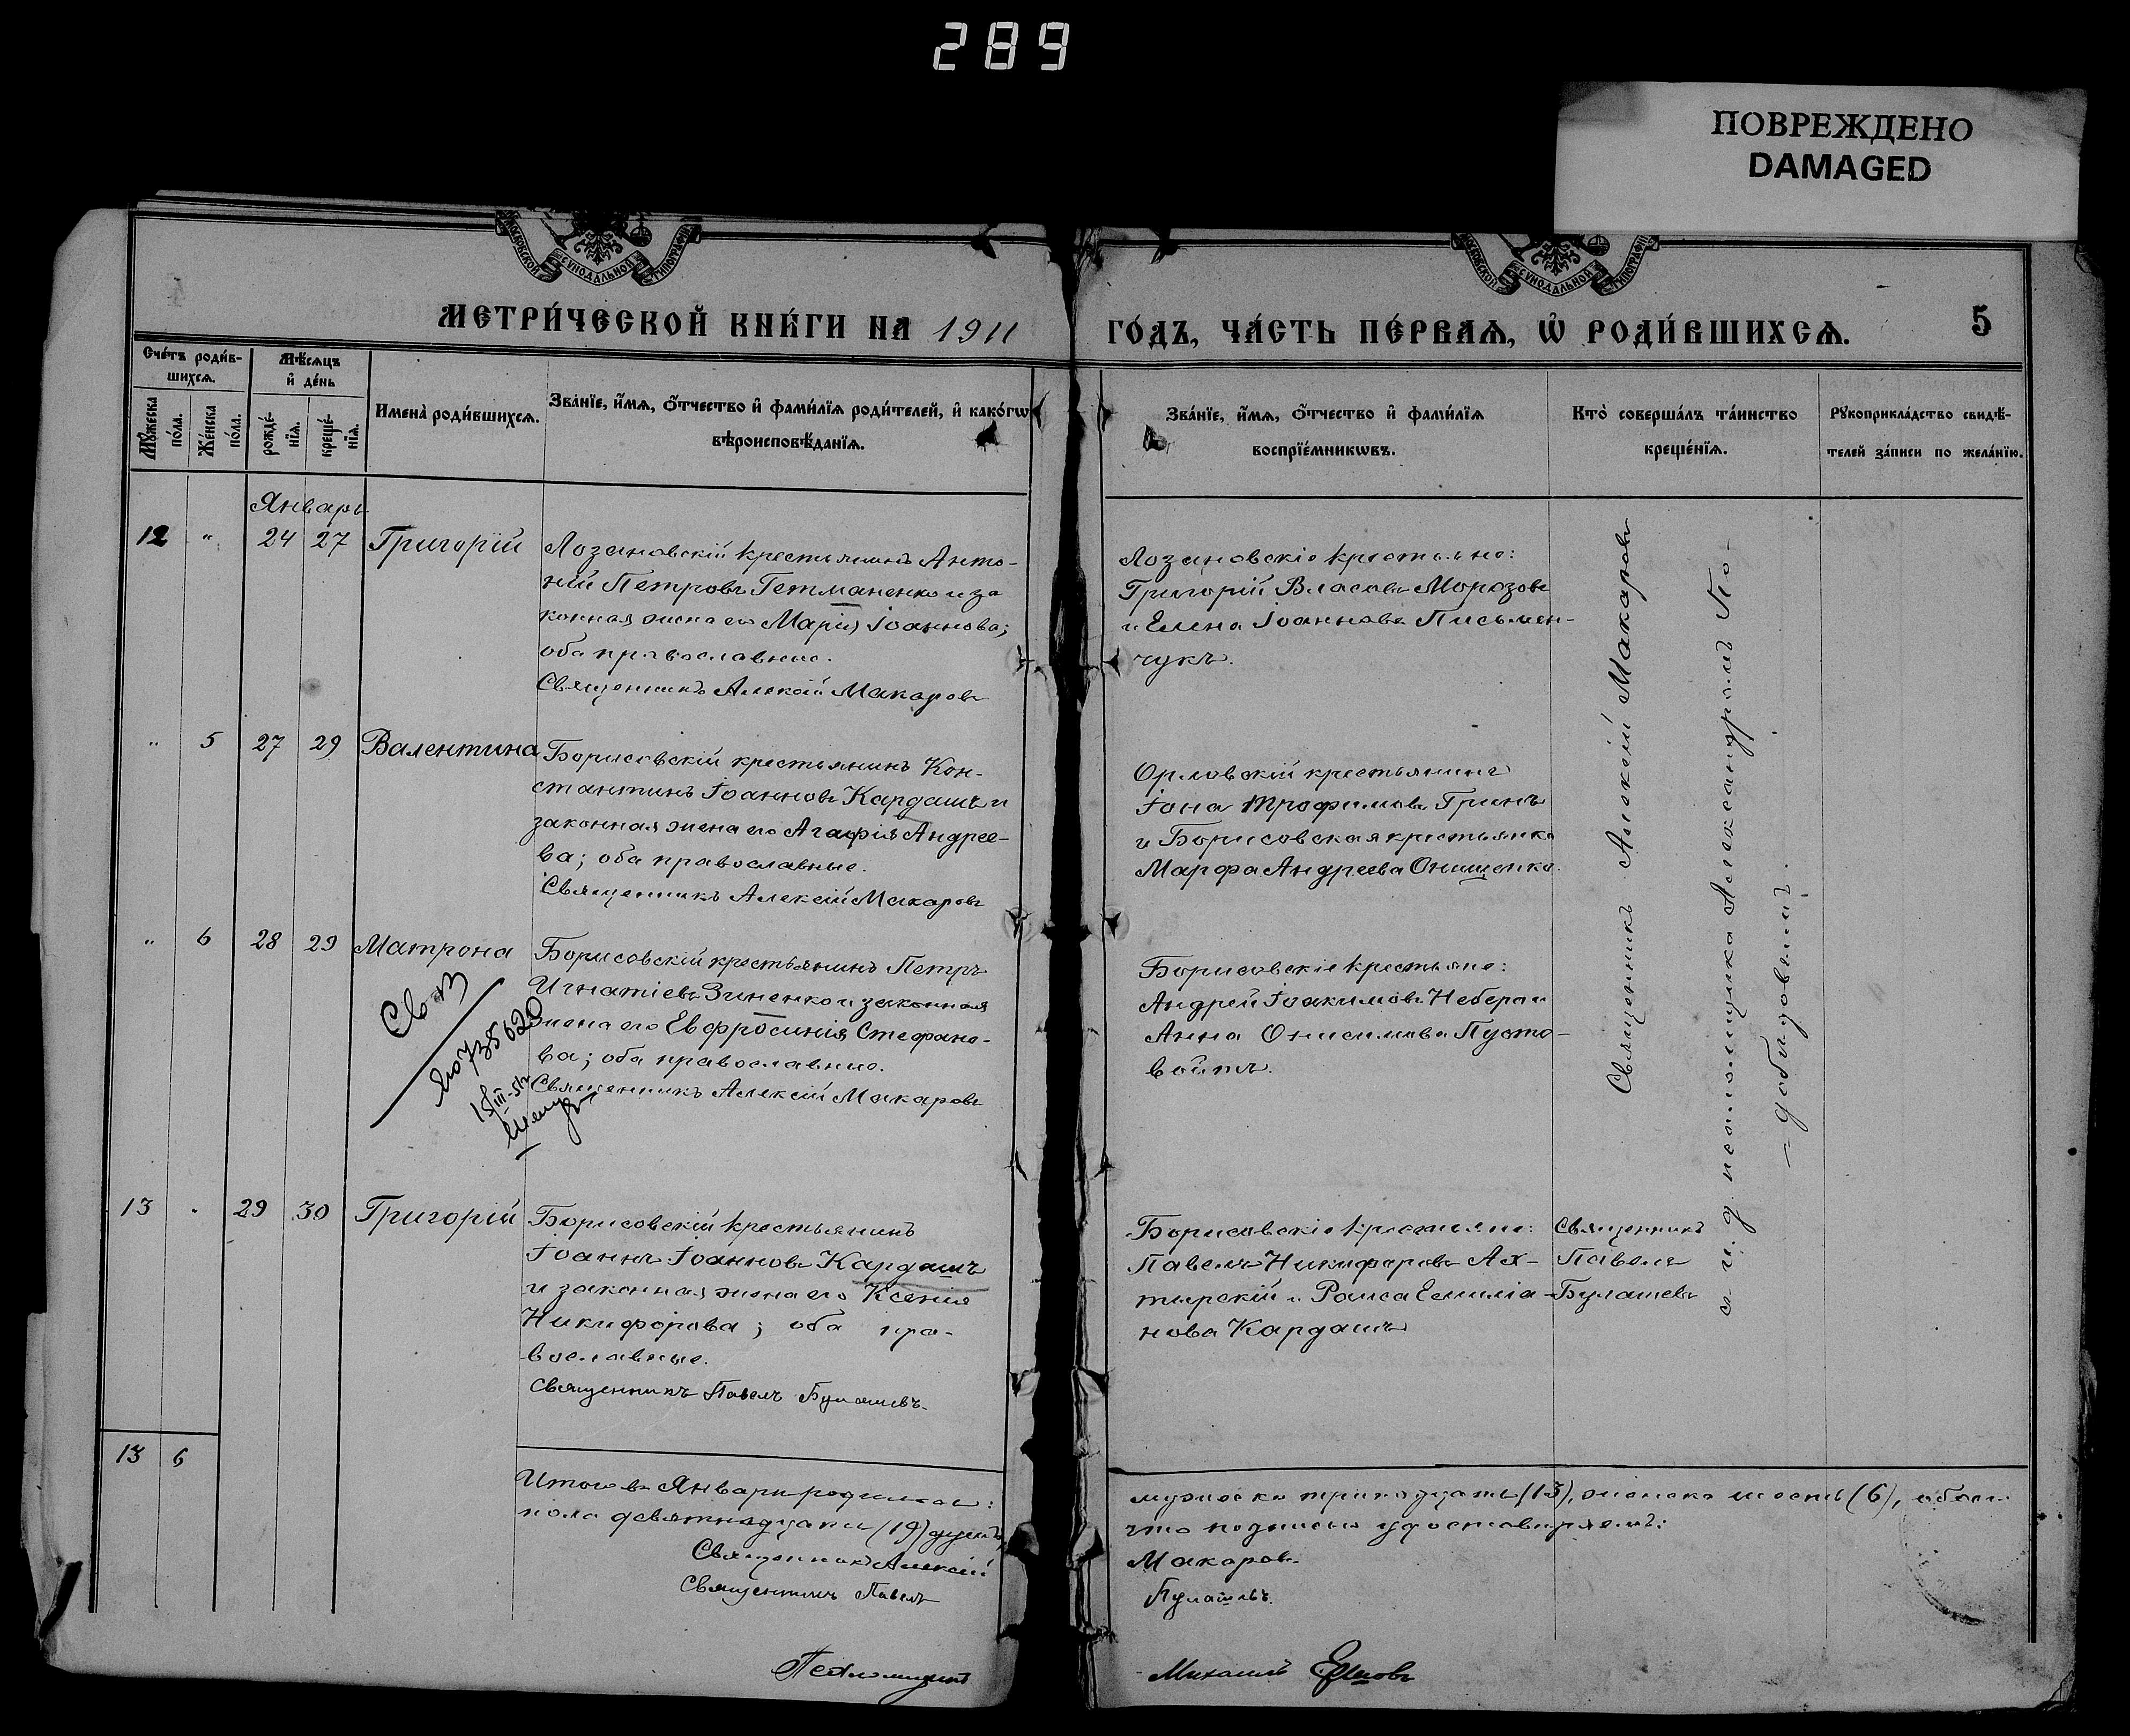 289
ПОВРЕЖДЕНО
DAMAGED
МОСКОВСКОЙ СѴНОДАЛЬНОЙ ТИПОГРАФІИ
МОСКОВСКОЙ СѴНОДАЛЬНОЙ ТИПОГРАФІИ
МЕТРИ́ЧЕСКОЙ КНИ́ГИ НА 1911
ГО́ДЪ, ЧА́СТЬ ПЕ́РВАѦ, Ѡ҆ РОДИ́ВШИХСѦ.
5
Сче́тъ роди́в-
шихсѧ.
Мꙋ́жеска по́ла.
Же́нска по́ла.
Мѣ́сѧцъ
и҆ де́нь
рожде́-нїѧ.
креще́-нїѧ.
Имена̀ роди́вшихсѧ.
Зва́нїе, и҆́мѧ, ѻ҆́тчество и҆ фами́лїѧ роди́телей, и҆ како́гѡ
вѣроисповѣ́данїѧ.
Зва́нїе, и҆́мѧ, ѻ҆́тчество и҆ фами́лїѧ
воспрїе́мникѡвъ.
Кто̀ соверша́лъ та́инство
креще́нїѧ.
Рꙋкоприкла́дство свидѣ́-
телей за́писи по жела́нїю.
Январь
12 " 24 27 Григорій
Лозановскій крестьянинъ Анто-
ній Петровъ Гетманенко и за
конная жена его Марія Іоаннова;
оба православные.
Священникъ Алексій Макаровъ
Лозановскіе крестьяне:
Григорій Власовъ Морозовъ
и Елена Іоаннова Письмен-
чукъ.
" 5 27 29 Валентина
Борисовскій крестьянинъ Кон-
стантинъ Іоанновъ Кардашъ и
законная жена его Агафія Андрее-
ва; оба православные.
Священникъ Алексій Макаровъ
Орловскій крестьянинъ
Іона Трофимовъ Гринь
и Борисовская крестьянка
Марфа Андреева Онищенко.
" 6 28 29 Матрона
Борисовскій крестьянинъ Петръ
Игнатіевъ Зиненко и законная
жена его Евфросинія Стефано-
ва; оба православные.
Священникъ Алексій Макаровъ
Св-во
735620
Борисовскіе крестьяне:
Андрей Іоакимовъ Небера и
Анна Онисимова Пусто-
войтъ.
13 " 29 30 Григорій
Борисовскій крестьянинъ
Іоаннъ Іоанновъ Кардашъ
и законная жена его Ксенія
Никифорова; оба пра-
вославные.
Священникъ Павелъ Булашевъ.
Борисовскіе крестьяне:
Павелъ Никифоровъ Ах-
тырскій и Раиса Емиліа-
нова Кардашъ
Священникъ
Павелъ
Булашевъ
Священникъ Алексій Макаровъ
съ и. д. псаломщика Александромъ По-
- добидовымъ.
13 6
Итого въ Январѣ родилось:
мужеска тринадцать (13), женска шесть (6), обоего
пола девятнадцать (19) душъ,
что подписью удостовѣряемъ:
Священникъ Алексій
Макаровъ
Священникъ Павелъ
Булашевъ.
Псаломщикъ
Михаилъ